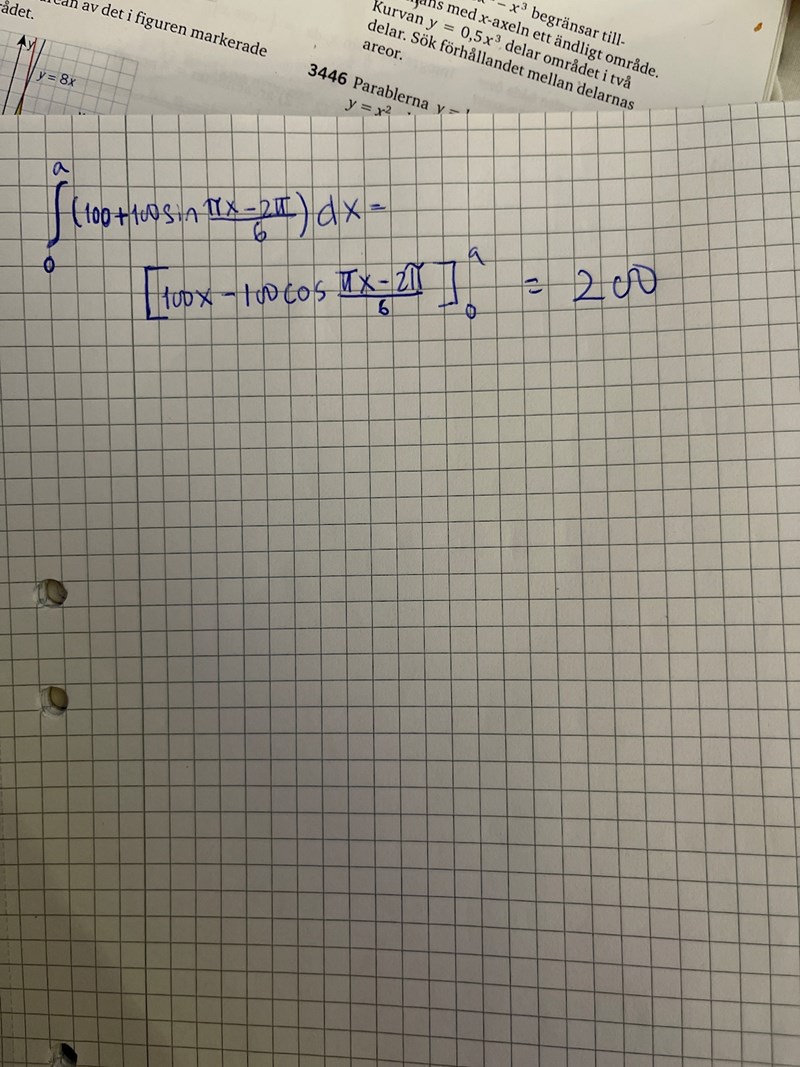 av det i figuren markerade
ådet.
y
y = 8x
– x³ begränsar till-
med x-axeln ett ändligt område.
Kurvan y = 0,5x³ delar området i två
delar. Sök förhållandet mellan delarnas
areor.
3446 Parablerna y =
y = x²
∫₀ᵃ (100+100sin (πx-2π)/6) dx =
[100x - 100cos (πx-2π)/6]₀ᵃ = 200